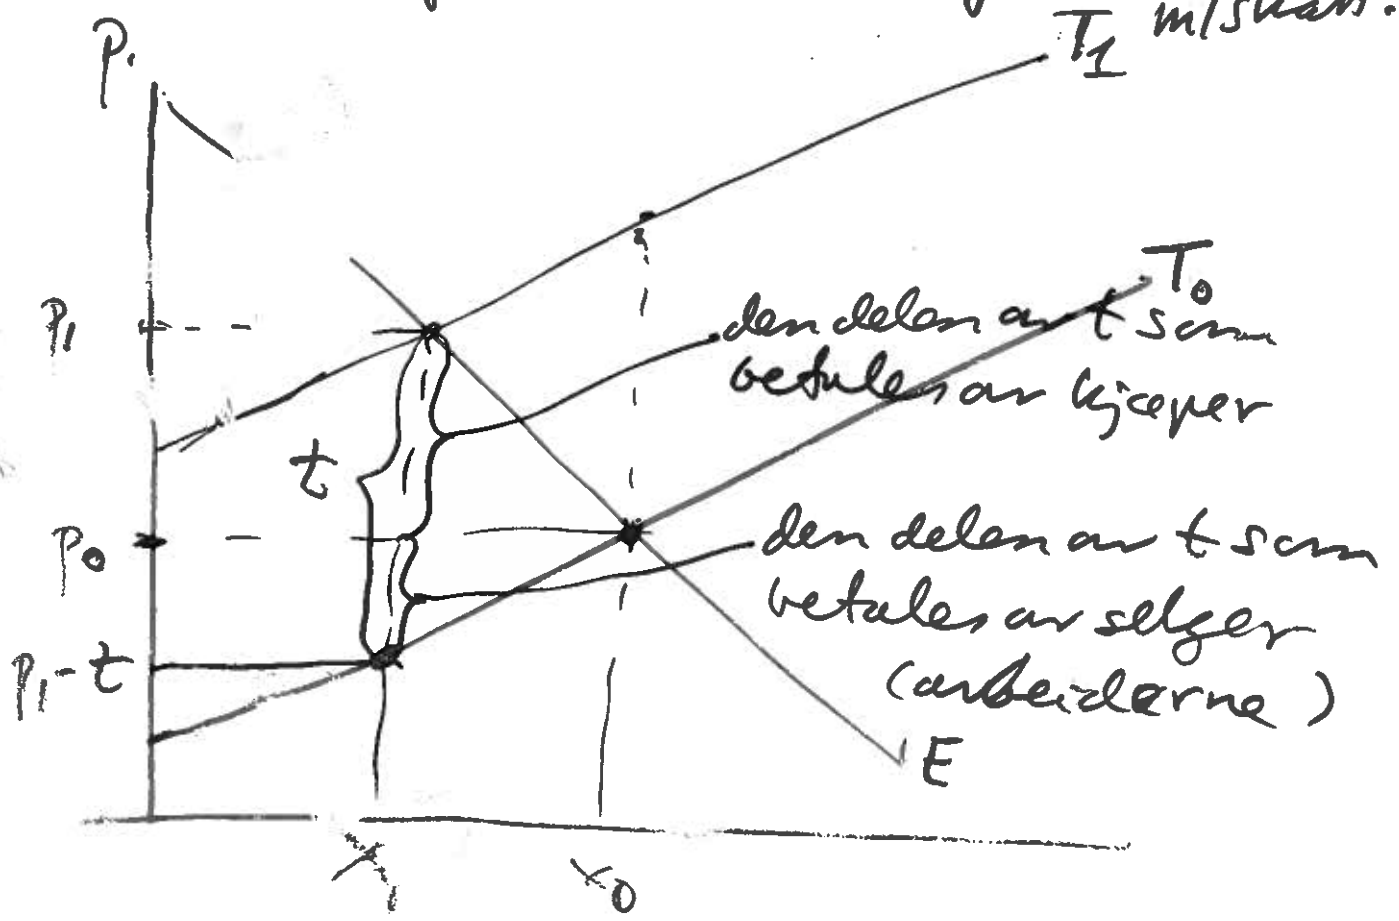 P.
T1 m/skatt.
T0
P1
den delen av t som
betales av kjøper
t
P0
den delen av t som
betales av selger
(arbeiderne)
P1-t
E
X1
X0